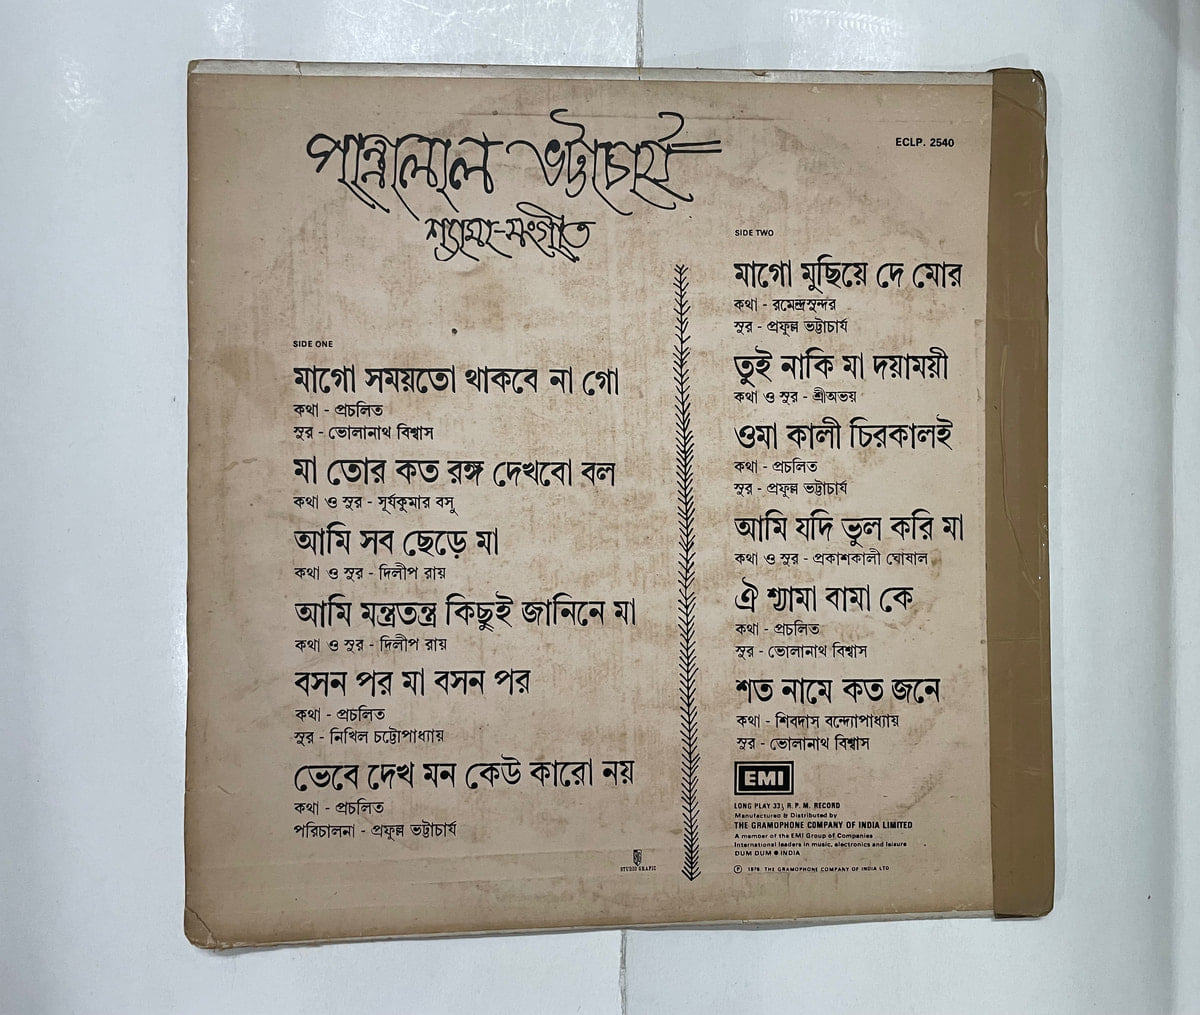 পান্নালাল ভট্টাচার্য
শ্যামা-সংগীত
ECLP. 2540
SIDE ONE
মাগো সময়তো থাকবে না গো
কথা - প্রচলিত
সুর - ভোলানাথ বিশ্বাস
মা তোর কত রঙ্গ দেখবো বল
কথা ও সুর - সূর্যকুমার বসু
আমি সব ছেড়ে মা
কথা ও সুর - দিলীপ রায়
আমি মন্ত্রতন্ত্র কিছুই জানিনে মা
কথা ও সুর - দিলীপ রায়
বসন পর মা বসন পর
কথা - প্রচলিত
সুর - নিখিল চট্টোপাধ্যায়
ভেবে দেখ মন কেউ কারো নয়
কথা - প্রচলিত
পরিচালনা - প্রফুল্ল ভট্টাচার্য
STUDIO GRAFIC
SIDE TWO
মাগো মুছিয়ে দে মোর
কথা - রমেন্দ্রসুন্দর
সুর - প্রফুল্ল ভট্টাচার্য
তুই নাকি মা দয়াময়ী
কথা ও সুর - শ্রীঅভয়
ওমা কালী চিরকালই
কথা - প্রচলিত
সুর - প্রফুল্ল ভট্টাচার্য
আমি যদি ভুল করি মা
কথা ও সুর - প্রকাশকালী ঘোষাল
ঐ শ্যামা বামা কে
কথা - প্রচলিত
সুর - ভোলানাথ বিশ্বাস
শত নামে কত জনে
কথা - শিবদাস বন্দ্যোপাধ্যায়
সুর - ভোলানাথ বিশ্বাস
EMI
LONG PLAY 33⅓ R. P. M. RECORD
Manufactured & Distributed by
THE GRAMOPHONE COMPANY OF INDIA LIMITED
A member of the EMI Group of Companies
International leaders in music, electronics and leisure
DUM DUM ● INDIA
Ⓟ 1976 THE GRAMOPHONE COMPANY OF INDIA LTD